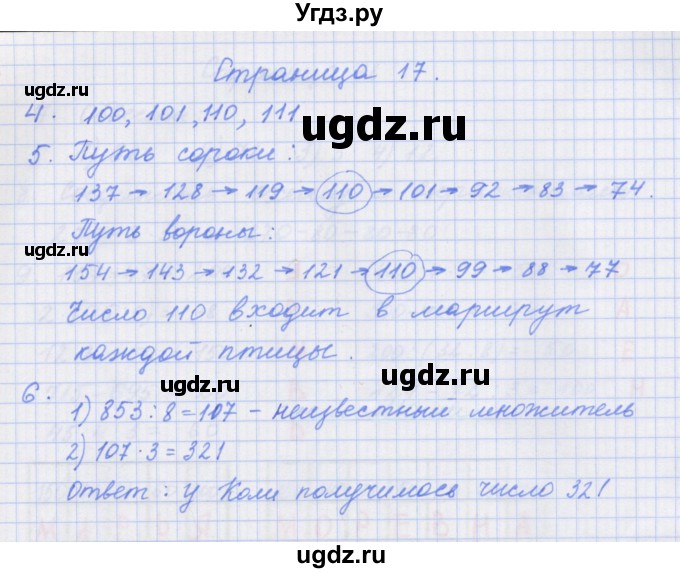 Угдз.ру
Страница 17.
ugdz.ru
ugdz.ru
4. 100, 101, 110, 111
ugdz.ru
5. Путь сороки:
137 → 128 → 119 → 110 → 101 → 92 → 83 → 74.
Путь вороны:
ugdz.ru
ugdz.ru
154 → 143 → 132 → 121 → 110 → 99 → 88 → 77
Число 110 входит в маршрут
каждой птицы.
ugdz.ru
ugdz.ru
6.
1) 853 : 8 = 107 – неизвестный множитель
2) 107 · 3 = 321
ugdz.ru
Ответ: у Коли получилось число 321
ugdz.ru
ugdz.ru